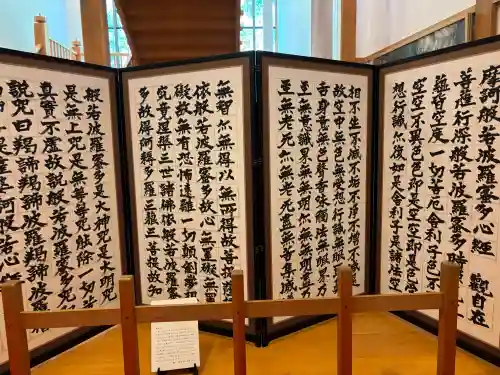 摩訶般若波羅蜜多心經觀自在
菩薩行深般若波羅蜜多時照見五
蘊皆空度一切苦厄舍利子色不異
空空不異色色即是空空即是色受
想行識亦復如是舍利子是諸法空
相不生不滅不垢不淨不增不減是
故空中無色無受想行識無眼耳鼻
舌身意無色聲香味觸法無眼界乃
至無意識界無無明亦無無明盡乃
至無老死亦無老死盡無苦集滅道
無智亦無得以無所得故菩提薩埵
依般若波羅蜜多故心無罣礙無罣
礙故無有恐怖遠離一切顛倒夢想
究竟涅槃三世諸佛依般若波羅蜜
多故得阿耨多羅三藐三菩提故知
般若波羅蜜多是大神咒是大明咒
是無上咒是無等等咒能除一切苦
真實不虛故說般若波羅蜜多咒即
說咒曰羯諦羯諦波羅羯諦波羅僧